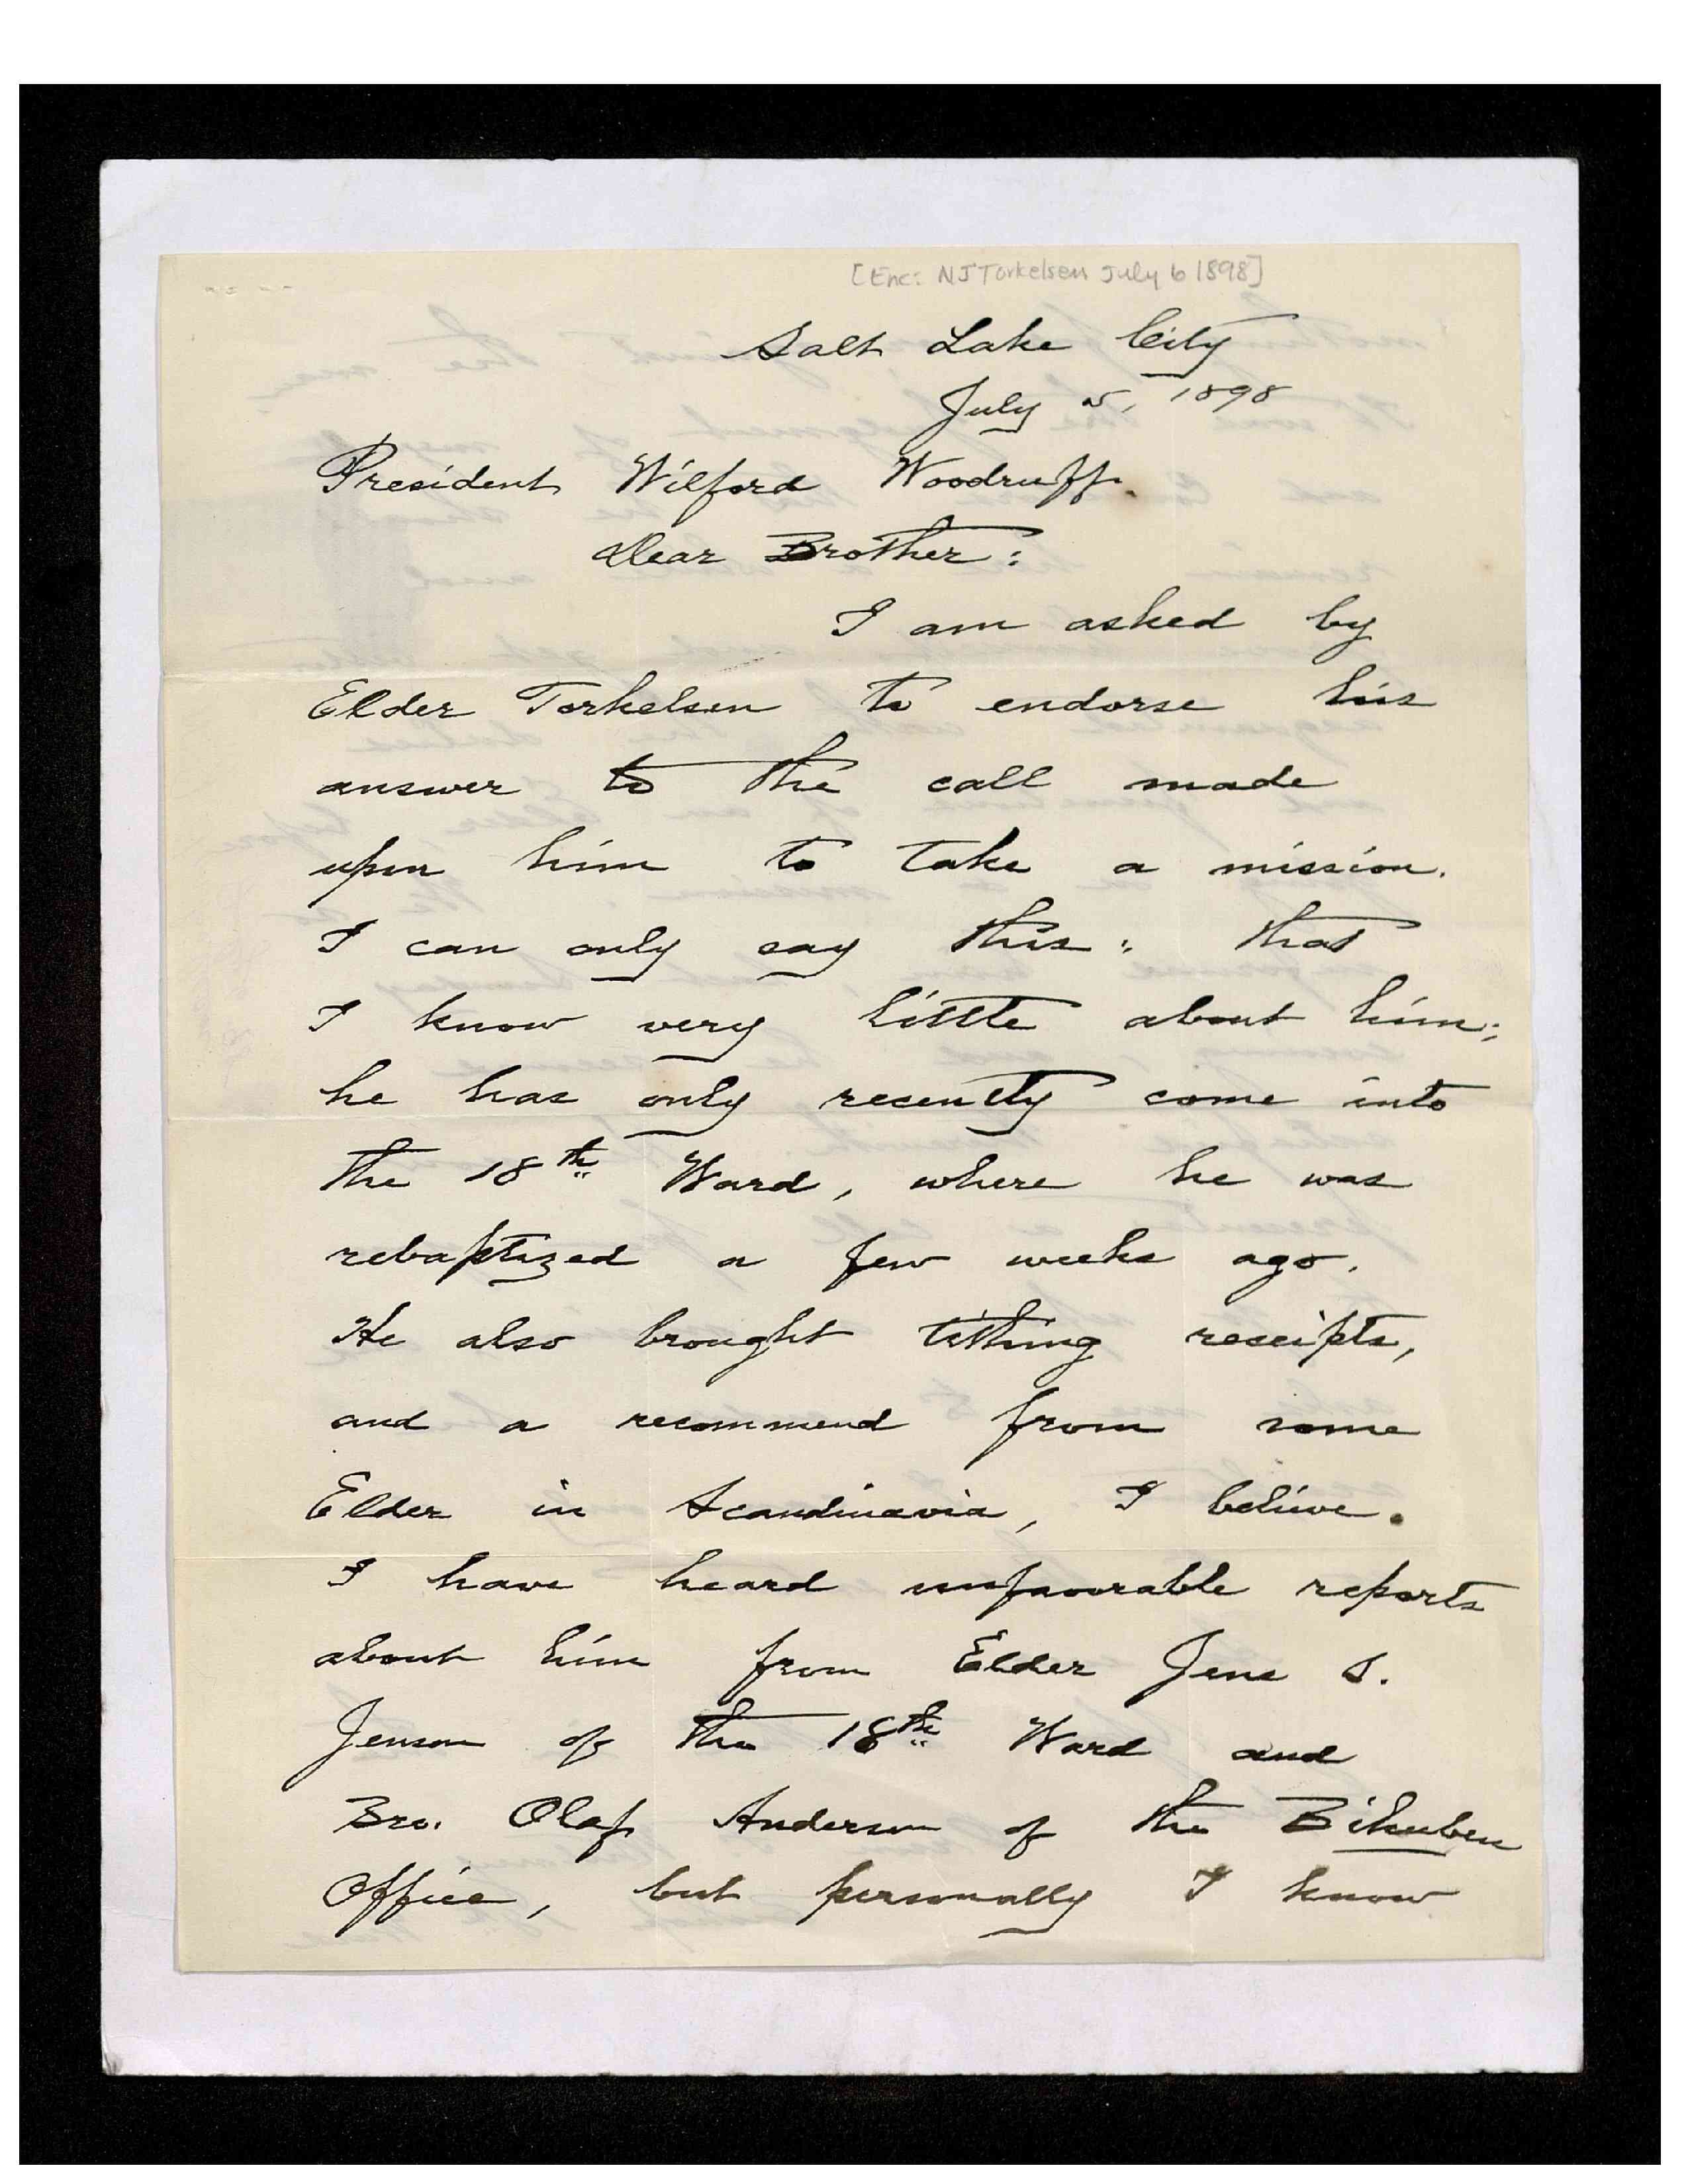 [Enc: NJTorkelsen July 6 1898]
Salt Lake City
July 5, 1898
President Wilford Woodruff.
Dear Brother:
I am asked by
Elder Torkelsen to endorse his
answer to the call made
upon him to take a mission.
I can only say this: that
I know very little about him;
he has only recently come into
the 18th Ward, where he was
rebaptized a few weeks ago.
He also brought tithing receipts,
and a recommend from some
Elder in Scandinavia, I believe.
I have heard unfavorable reports
about him from Elder Jens S.
Jensen of the 18th Ward and
Bro. Olaf Anderson of the Bikuben
Office, but personally I know